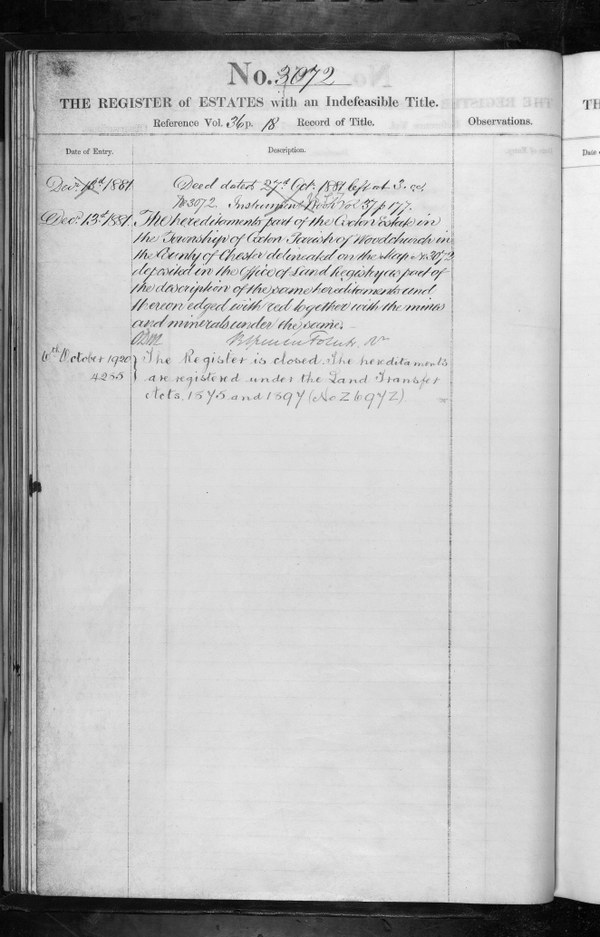 No. 3072
THE REGISTER of ESTATES with an Indefeasible Title.
Reference Vol. 36 p. 18 Record of Title.
Observations.
Date of Entry.
Description.
Decr 13th 1881
Deed dated 27th Oct. 1881 left at 3.
No 3072. Instrument Book Vol 37 p 177.
Decr 13th 1881.
The hereditaments part of the Oxton Estate in
the Township of Oxton Parish of Woodchurch in
the County of Chester delineated on the Map No 3072
deposited in the Office of Land Registry as part of
the description of the same hereditaments and
thereon edged with red together with the mines
and minerals under the same.
6th October 1920
4255
The Register is closed. The hereditaments
are registered under the Land Transfer
Acts, 1875 and 1897 (No Z 6972)
TH
Date